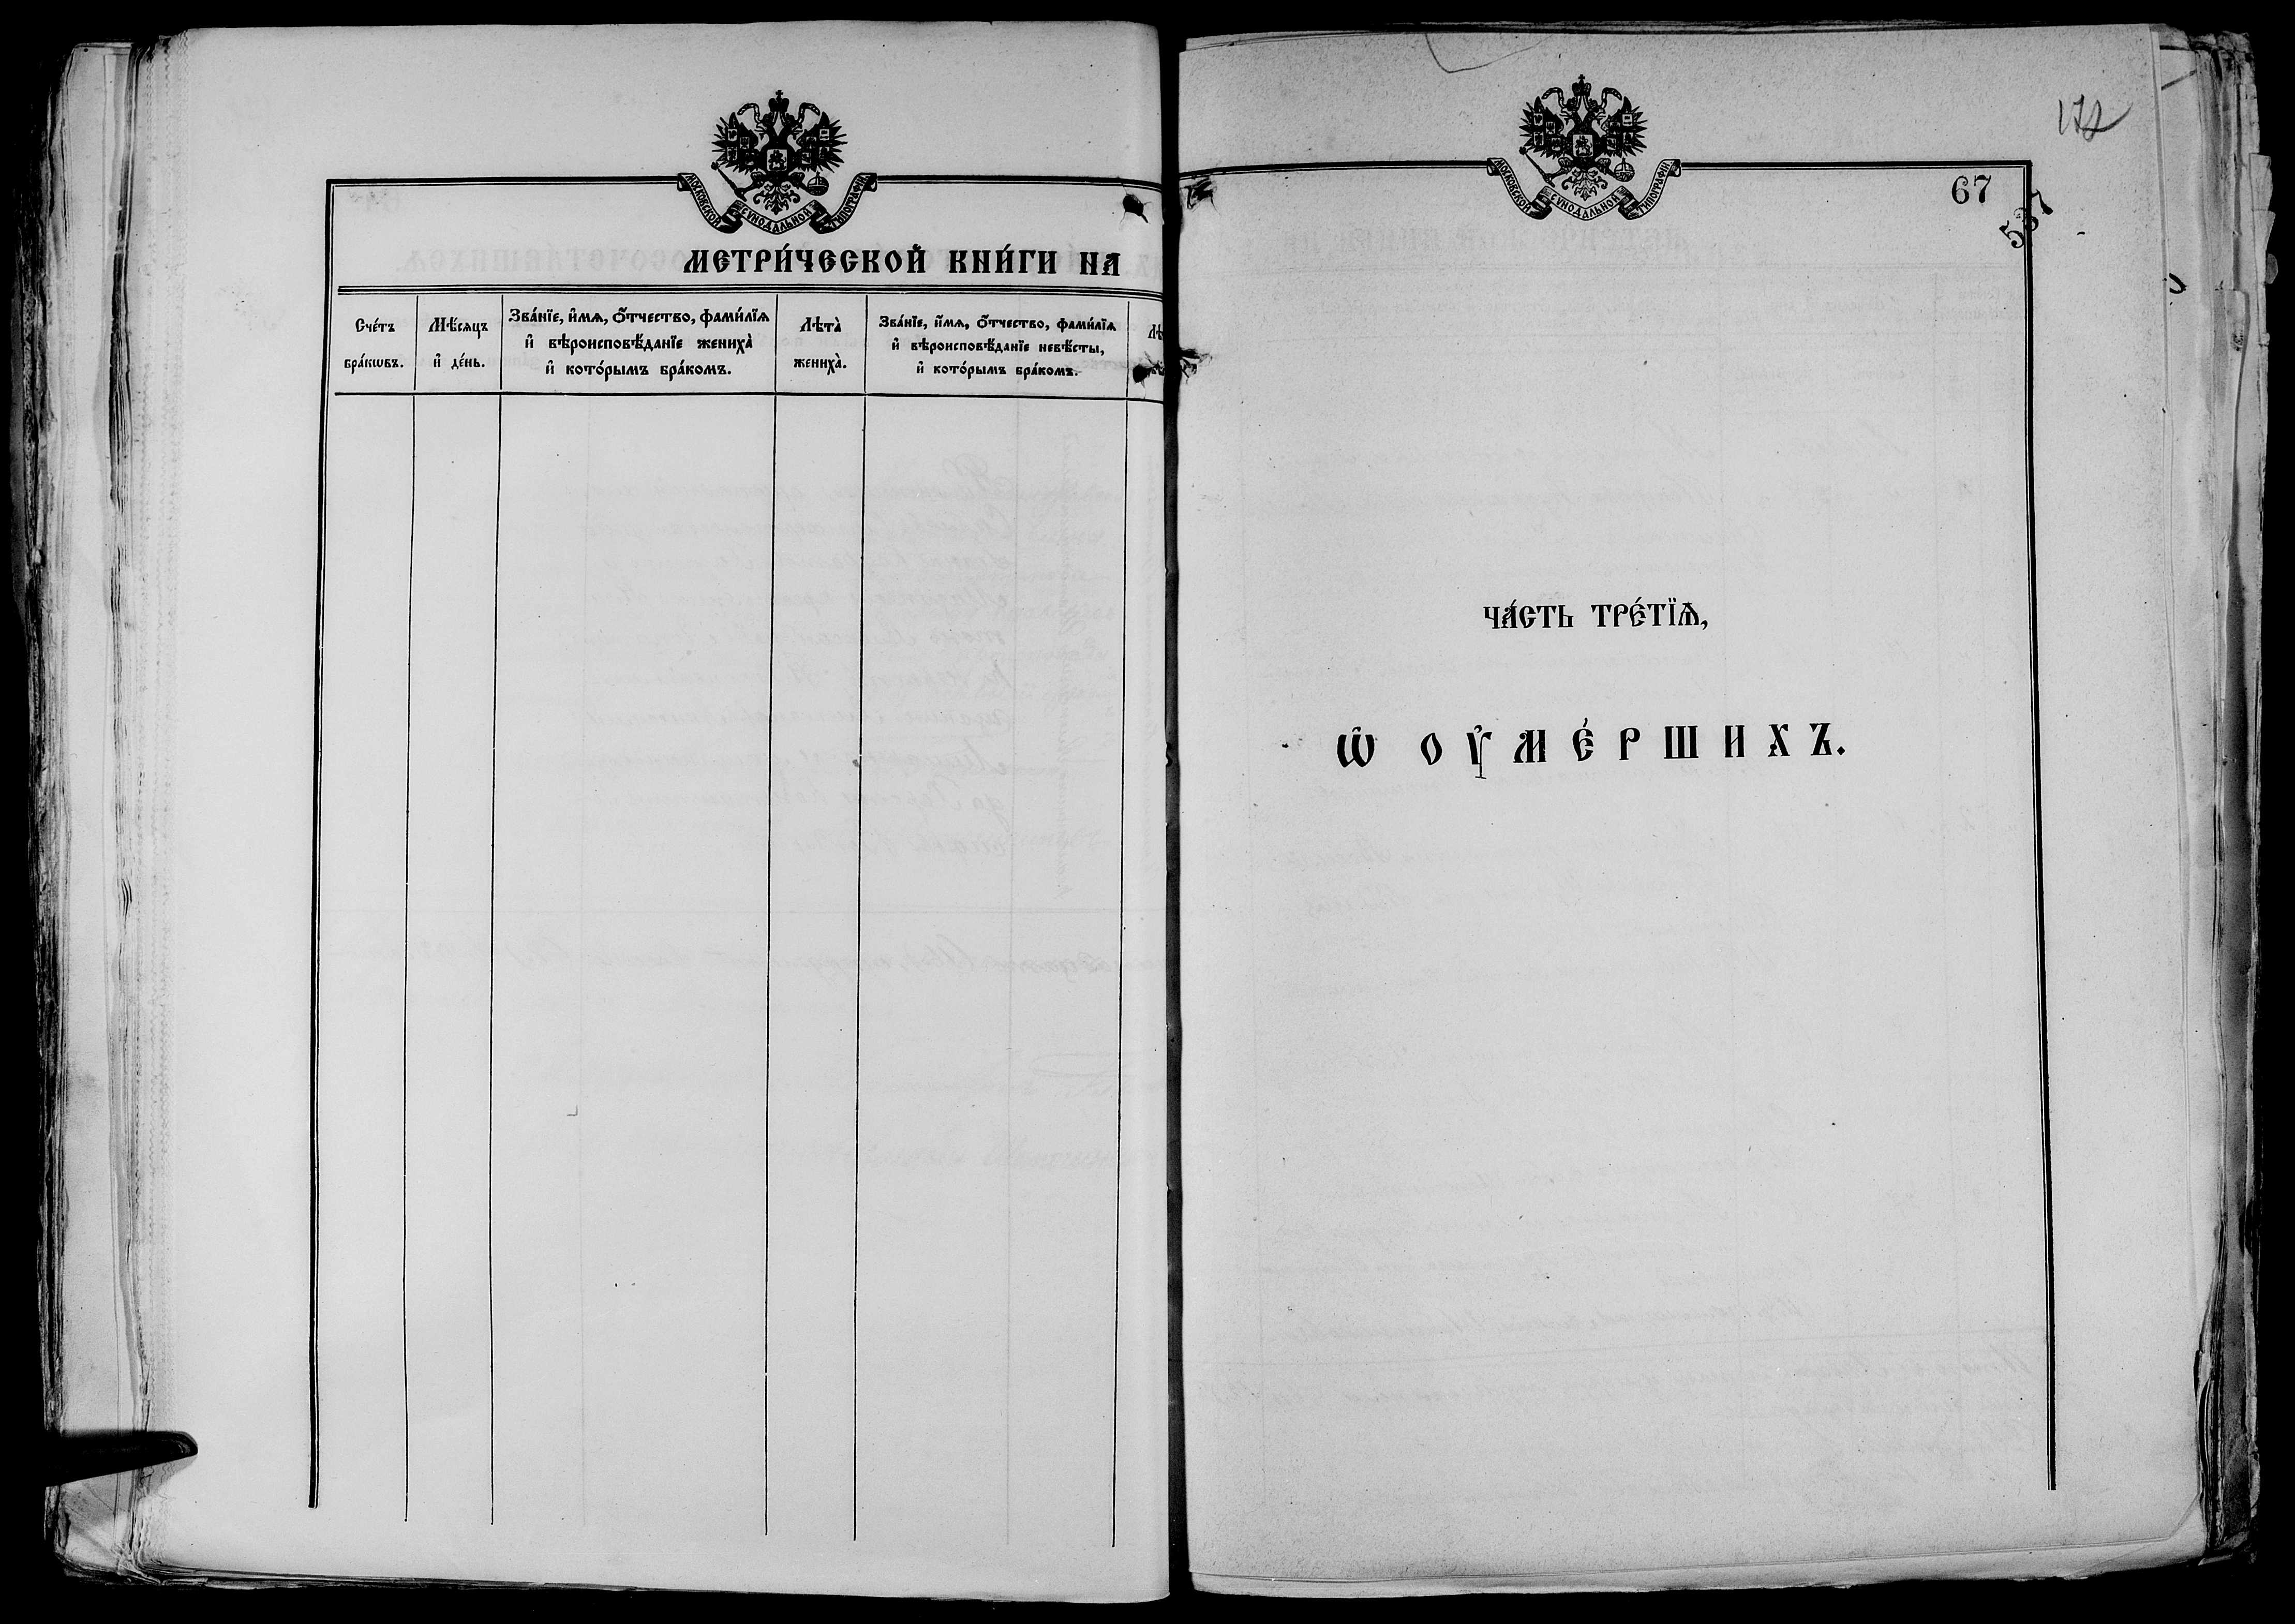 МОСКОВСКОЙ СѴНОДАЛЬНОЙ ТИПОГРАФІИ
МЕТРИ́ЧЕСКОЙ КНИ́ГИ НА
Сче́тъ
бра́кѡвъ.
Мѣ́сяцъ
и҆ де́нь.
Зва́нїе, и҆́мѧ, ѻ҆́тчество, фами́лїѧ
и҆ вѣроисповѣ́данїе жениха̀
и҆ кото́рымъ бра́комъ.
Лѣта̀
жениха̀.
Зва́нїе, и҆́мѧ, ѻ҆́тчество, фами́лїѧ
и҆ вѣроисповѣ́данїе невѣ́сты,
и҆ кото́рымъ бра́комъ.
Лѣ
МОСКОВСКОЙ СѴНОДАЛЬНОЙ ТИПОГРАФІИ
67
537
ЧА́СТЬ ТРЕ́ТЇѦ,
Ѡ҆ ОУ҆МЕ́РШИХЪ.